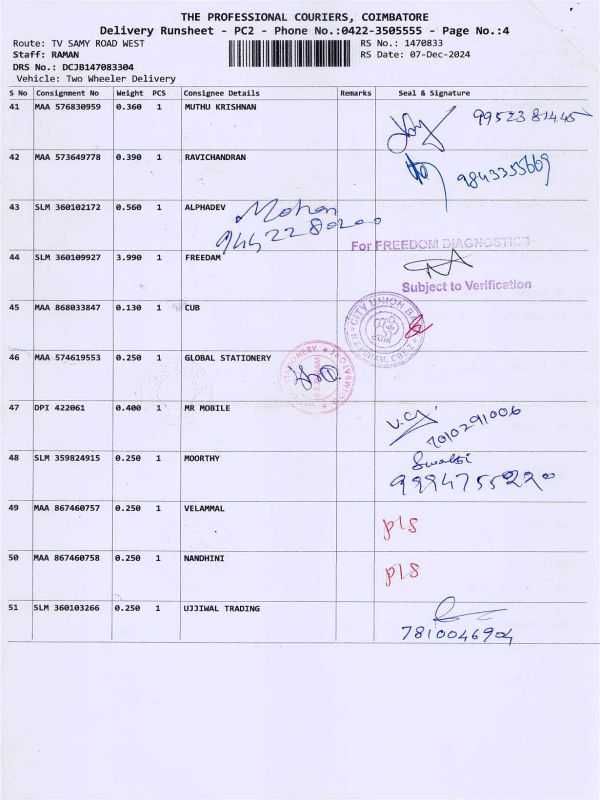 THE PROFESSIONAL COURIERS, COIMBATORE
Delivery Runsheet - PC2 - Phone No.:0422-3505555 - Page No.:4
Route: TV SAMY ROAD WEST RS No.: 1470833
Staff: RAMAN RS Date: 07-Dec-2024
DRS No.: DCJB147083304
Vehicle: Two Wheeler Delivery
S No Consignment No Weight PCS Consignee Details Remarks Seal & Signature
41 MAA 576830959 0.360 1 MUTHU KRISHNAN
9952381445
42 MAA 573649778 0.390 1 RAVICHANDRAN
9843355669
43 SLM 360102172 0.560 1 ALPHADEV Mohan
For FREEDOM DIAGNOSTICS
44 SLM 360109927 3.990 1 FREEDAM
Subject to Verification
45 MAA 868033847 0.130 1 CUB
CITY UNION
46 MAA 574619553 0.250 1 GLOBAL STATIONERY
47 DPI 422061 0.400 1 MR MOBILE
7010291006
48 SLM 359824915 0.250 1 MOORTHY
49 MAA 867460757 0.250 1 VELAMMAL
PLS
50 MAA 867460758 0.250 1 NANDHINI
PLS
51 SLM 360103266 0.250 1 UJJIWAL TRADING
7810046904